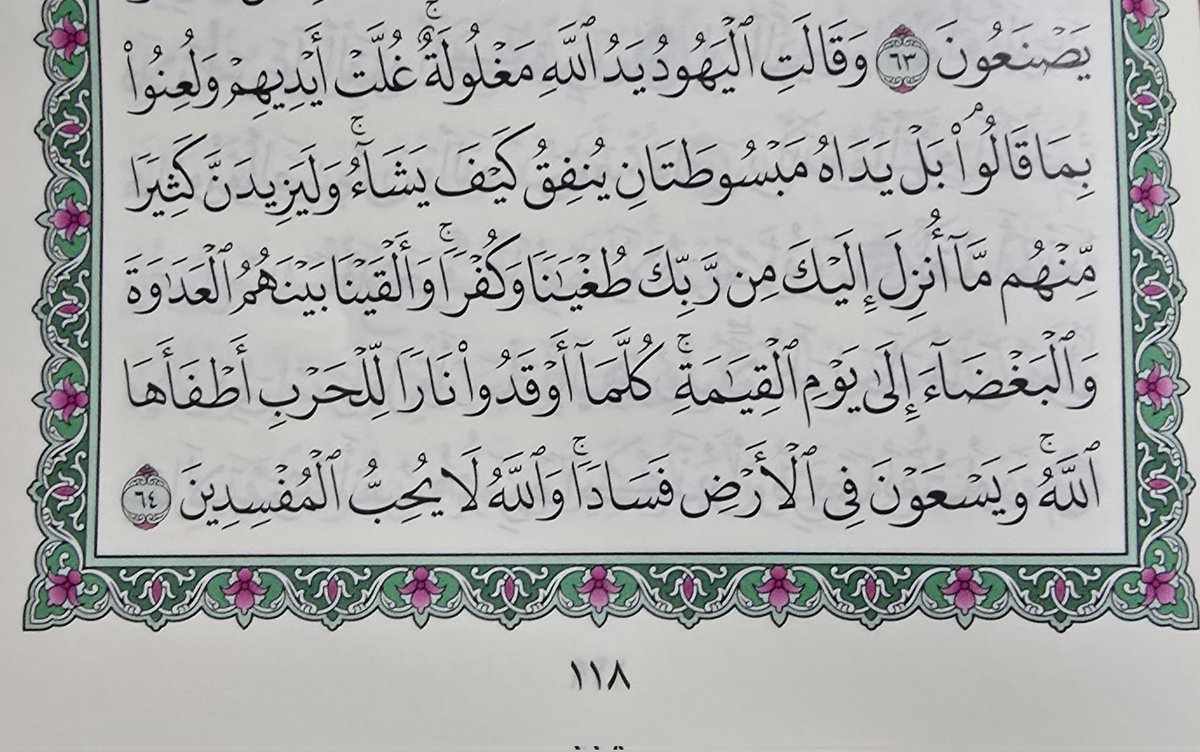 يَصْنَعُونَ ٦٣ وَقَالَتِ ٱلْيَهُودُ يَدُ ٱللَّهِ مَغْلُولَةٌۚ غُلَّتْ أَيْدِيهِمْ وَلُعِنُوا۟
بِمَا قَالُوا۟ۘ بَلْ يَدَاهُ مَبْسُوطَتَانِ يُنفِقُ كَيْفَ يَشَآءُۚ وَلَيَزِيدَنَّ كَثِيرًا
مِّنْهُم مَّآ أُنزِلَ إِلَيْكَ مِن رَّبِّكَ طُغْيَـٰنًا وَكُفْرًاۚ وَأَلْقَيْنَا بَيْنَهُمُ ٱلْعَدَٰوَةَ
وَٱلْبَغْضَآءَ إِلَىٰ يَوْمِ ٱلْقِيَـٰمَةِۚ كُلَّمَآ أَوْقَدُوا۟ نَارًا لِّلْحَرْبِ أَطْفَأَهَا
ٱللَّهُۚ وَيَسْعَوْنَ فِى ٱلْأَرْضِ فَسَادًاۚ وَٱللَّهُ لَا يُحِبُّ ٱلْمُفْسِدِينَ ٦٤
١١٨